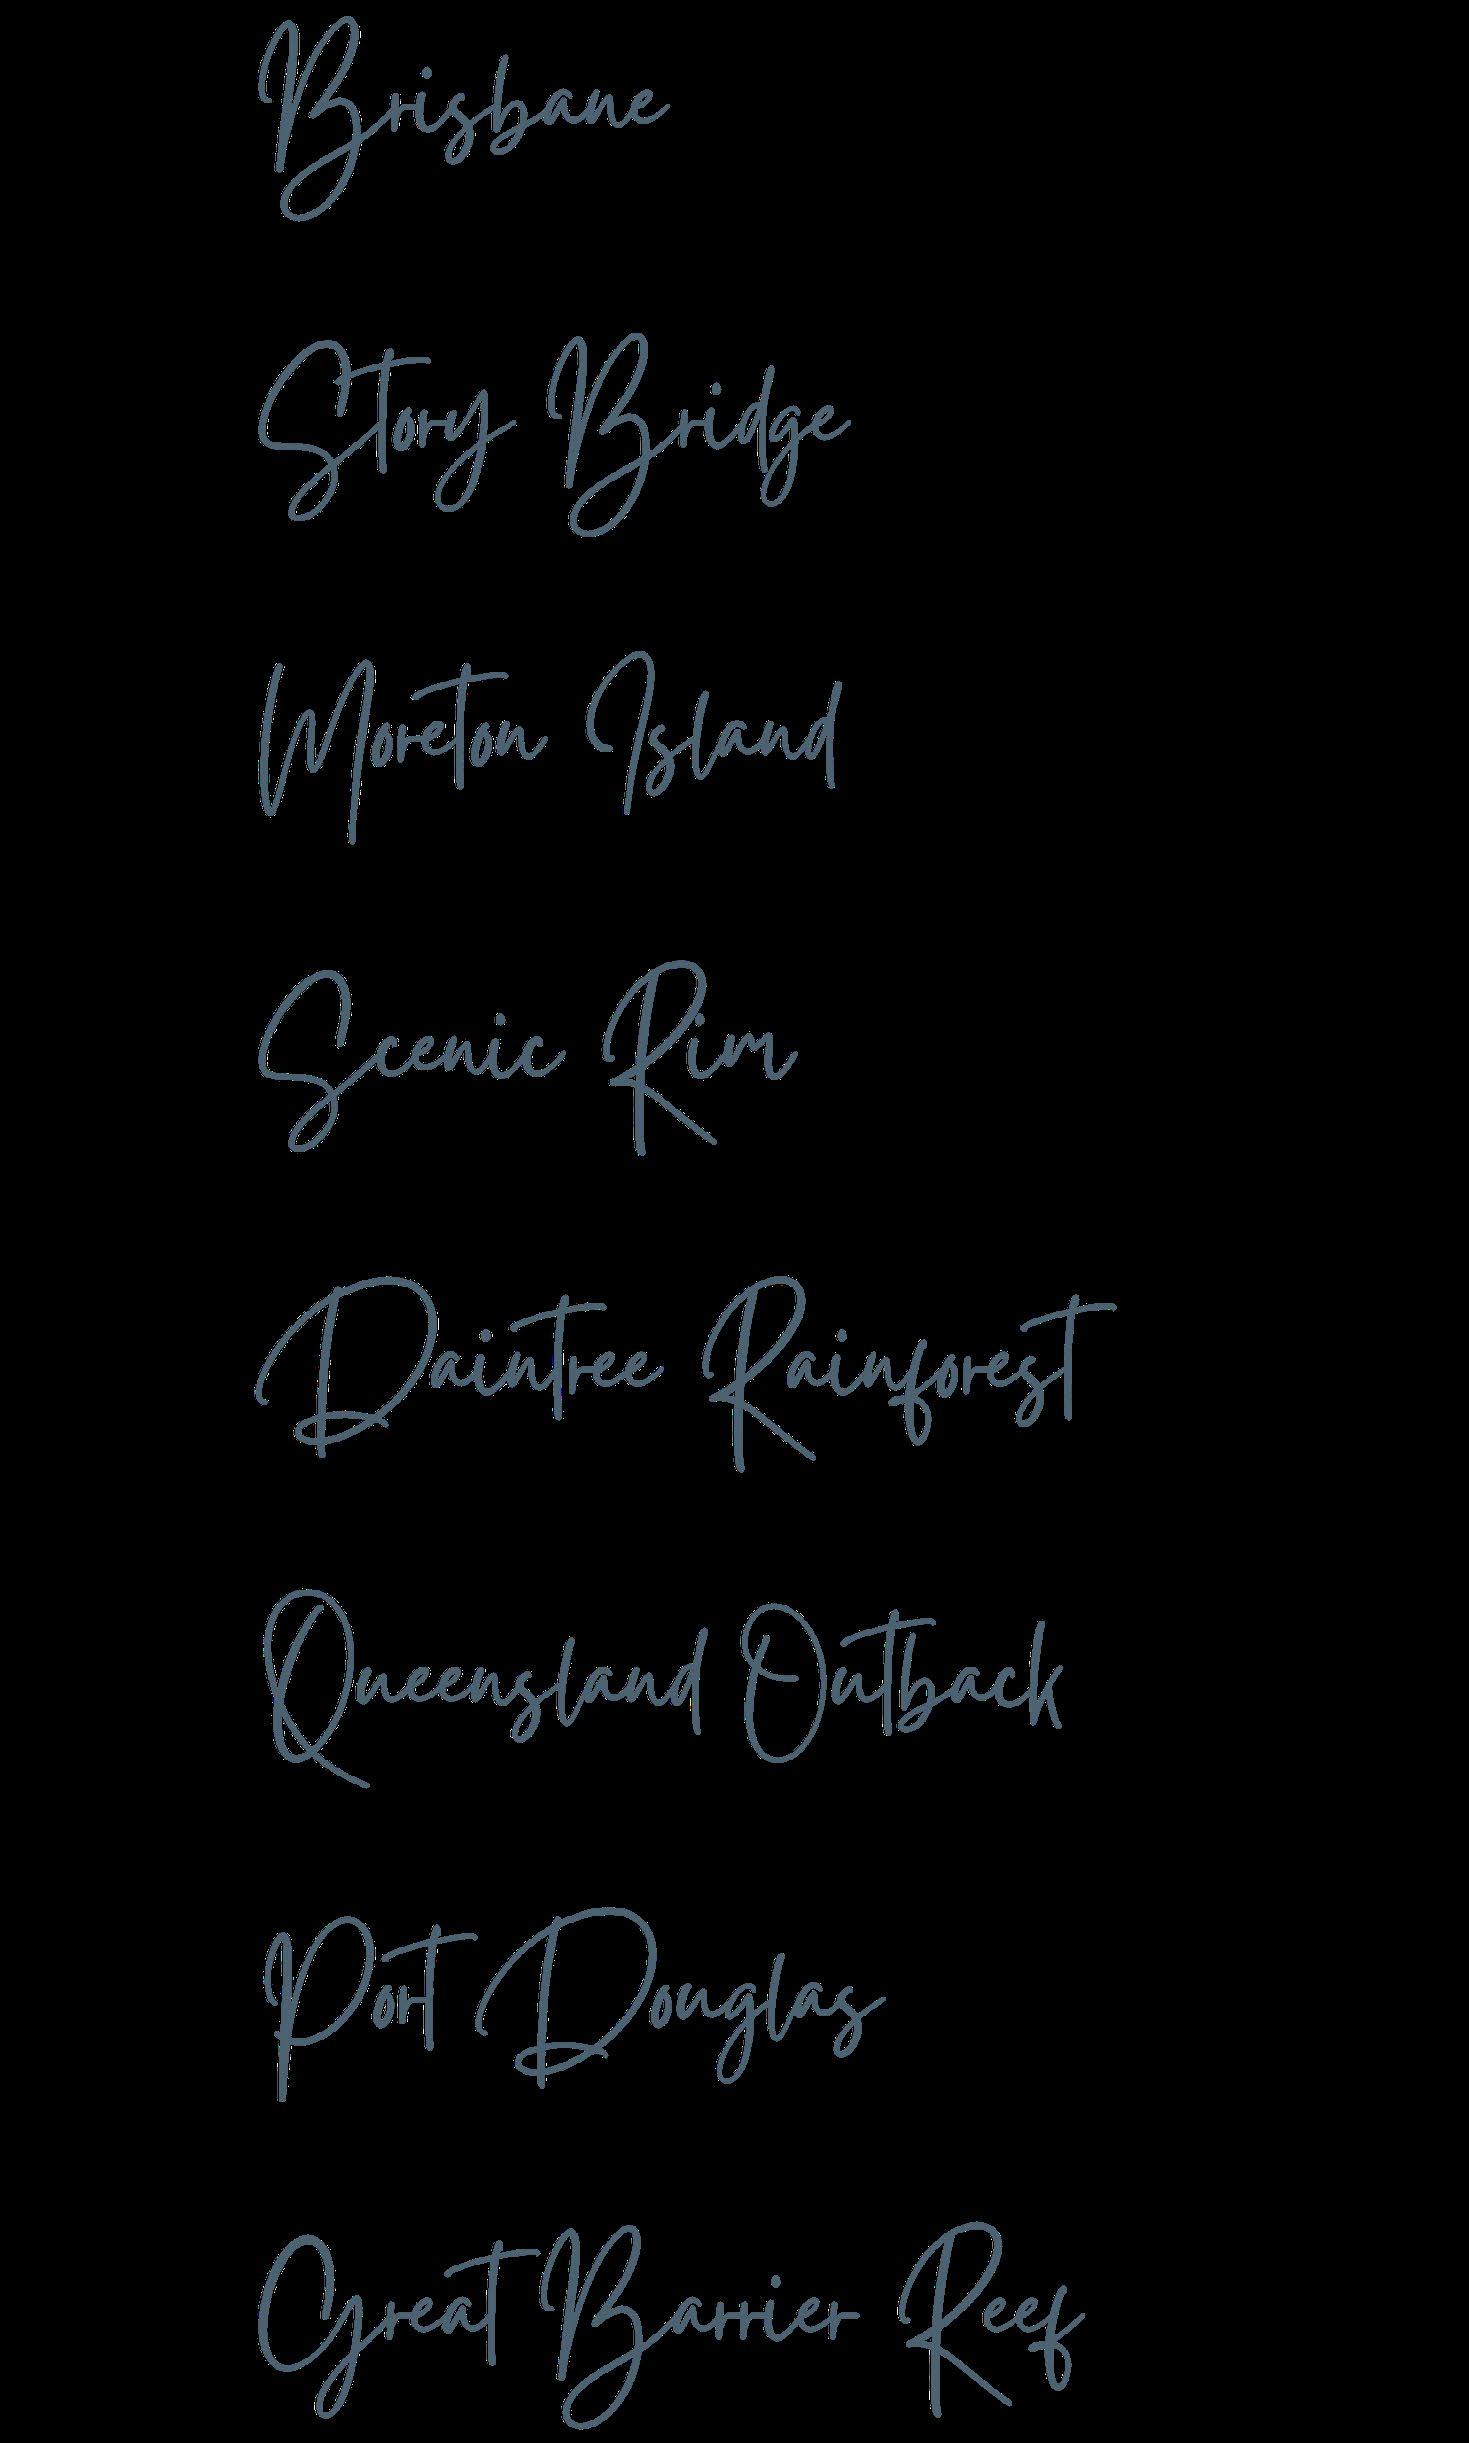 Brisbane
Story Bridge
Moreton Island
Scenic Rim
Daintree Rainforest
Queensland Outback
Port Douglas
Great Barrier Reef